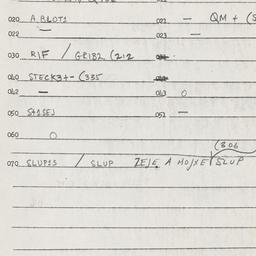 020 A.BLOT1 021 — QM + (S
022 — 023 —
030 RIF / GRIB2 (212
040 STECK3+- (335
042 — 043 O
050 S+1SEJ 051 —
060 O
(306
070 SLUP1S / SLUP ZEJE A MOJXE SLUP